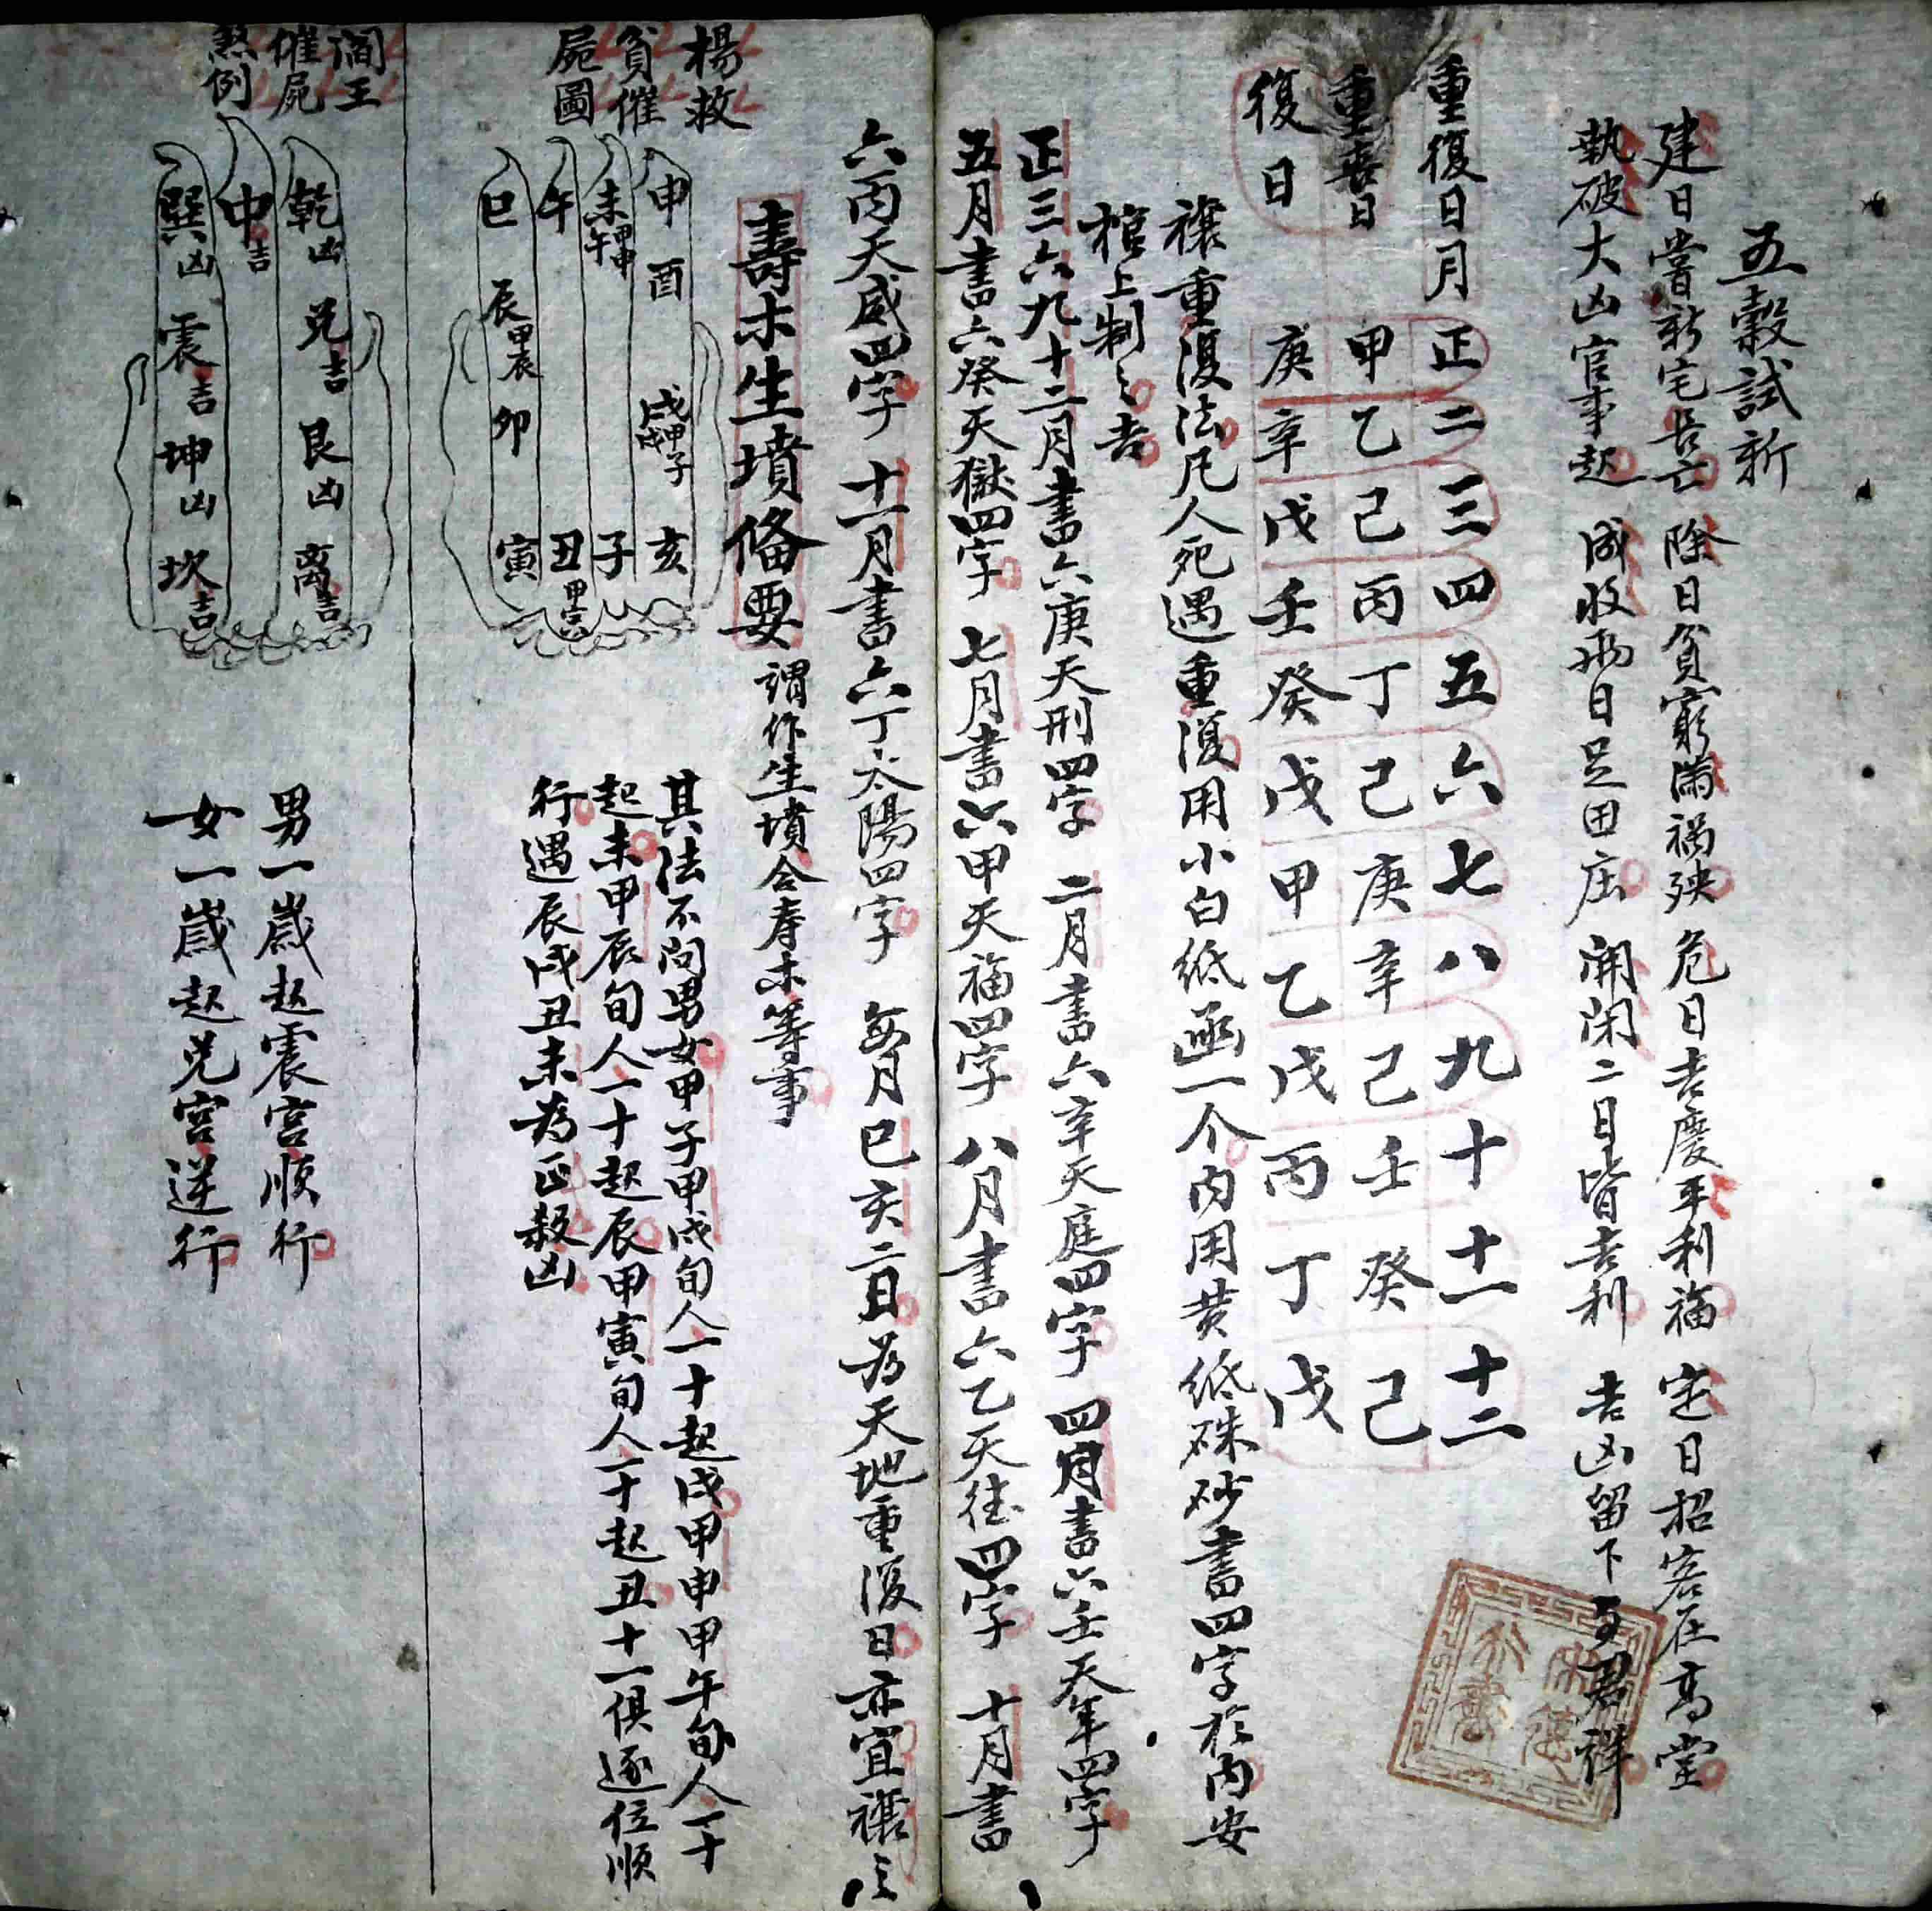 五穀試新
建日嘗新宅長亡 除日貧窮滿禍殃 危日吉慶平利福 定日招客在高堂
執破大凶官事起 成收兩日足田庄 開閉二日皆吉利 吉凶留下與君詳
重復日月 正 二 三 四 五 六 七 八 九 十 十一 十二
重喪日 甲 乙 己 丙 丁 己 庚 辛 己 壬 癸 己
復日 庚 辛 戊 壬 癸 戊 甲 乙 戊 丙 丁 戊
禳重復法凡人死遇重復用小白紙函一个內用黃紙硃砂書四字於內安
棺上制之吉
正三六九十二月書六庚天刑四字 二月書六辛天庭四字 四月書六壬天牢四字
五月書六癸天獄四字 七月書六甲天福四字 八月書六乙天德四字 十月書
六丙天威四字 十一月書六丁太陽四字 每月巳亥二日為天地重復日亦宜禳之
壽木生墳俻要 謂作生墳合寿木等事
楊救
貧催
屍圖
申 酉 戌甲戌甲子 亥
未甲午甲申 子
午 丑甲寅
巳 辰甲辰 卯 寅
其法不问男女甲子甲戌旬人一十起戌甲申甲午旬人一十
起未甲辰旬人一十起辰甲寅旬人一十起丑十一俱逐位順
行遇辰戌丑未為正殺凶
閻王
催屍
煞例
乾凶 兑吉 艮凶 离吉
中吉
巽凶 震吉 坤凶 坎吉
男一歲起震宮順行
女一歲起兑宮逆行